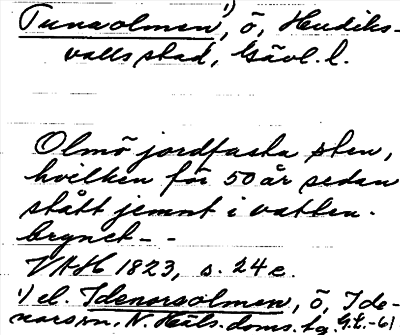 Tunaolmen¹), ö, Hudiks-
valls stad, Gävl. l.
Olmö jordfasta sten,
hvilken för 50 år sedan
stått jemnt i vatten-
brynet - -
VAH 1823, s. 24 c.
¹) el. Idenorsolmen, ö, Ide-
nors sn, N. Häls. doms. tg. G.L.-61